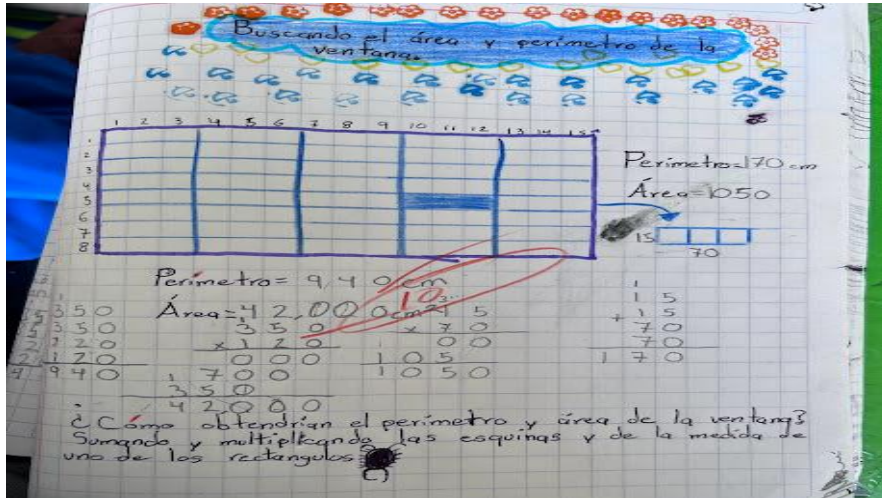 Buscando el área y perímetro de la
ventana.
1 2 3 4 5 6 7 8 9 10 11 12 13 14 15
1
2
3
4
5
6
7
8
Perímetro=170 cm
Área=1050
15
70
Perímetro= 940 cm
Área=42,000cm²
10
350
350
120
120
940
350
x 120
000
700
350
42000
15
x 70
00
105
1050
1
15
+ 15
70
70
170
¿Cómo obtendrían el perímetro y área de la ventana?
Sumando y multiplicando las esquinas y de la medida de
uno de los rectangulos